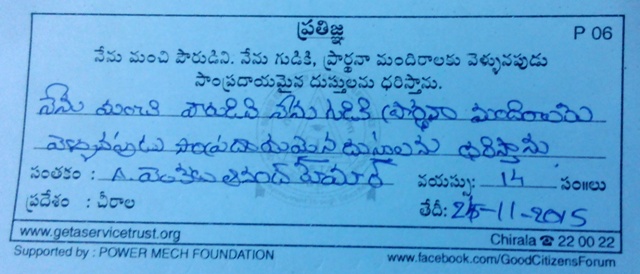 ప్రతిజ్ఞ
P 06
నేను మంచి పౌరుడిని. నేను గుడికి, ప్రార్థనా మందిరాలకు వెళ్ళునపుడు
సాంప్రదాయమైన దుస్తులను ధరిస్తాను.
నేను మంచి పౌరుడిని నేను గుడికి ప్రార్థనా మందిరాలకు
వెళ్ళునపుడు సాంప్రదాయమైన దుస్తులను ధరిస్తాను
సంతకం : A. ఆనంద్ కుమార్ వయస్సు: 14 సం॥లు
ప్రదేశం : చీరాల తేదీ: 25-11-2015
www.getaservicetrust.org Chirala ☎ 22 00 22
Supported by : POWER MECH FOUNDATION www.facebook.com/GoodCitizensForum